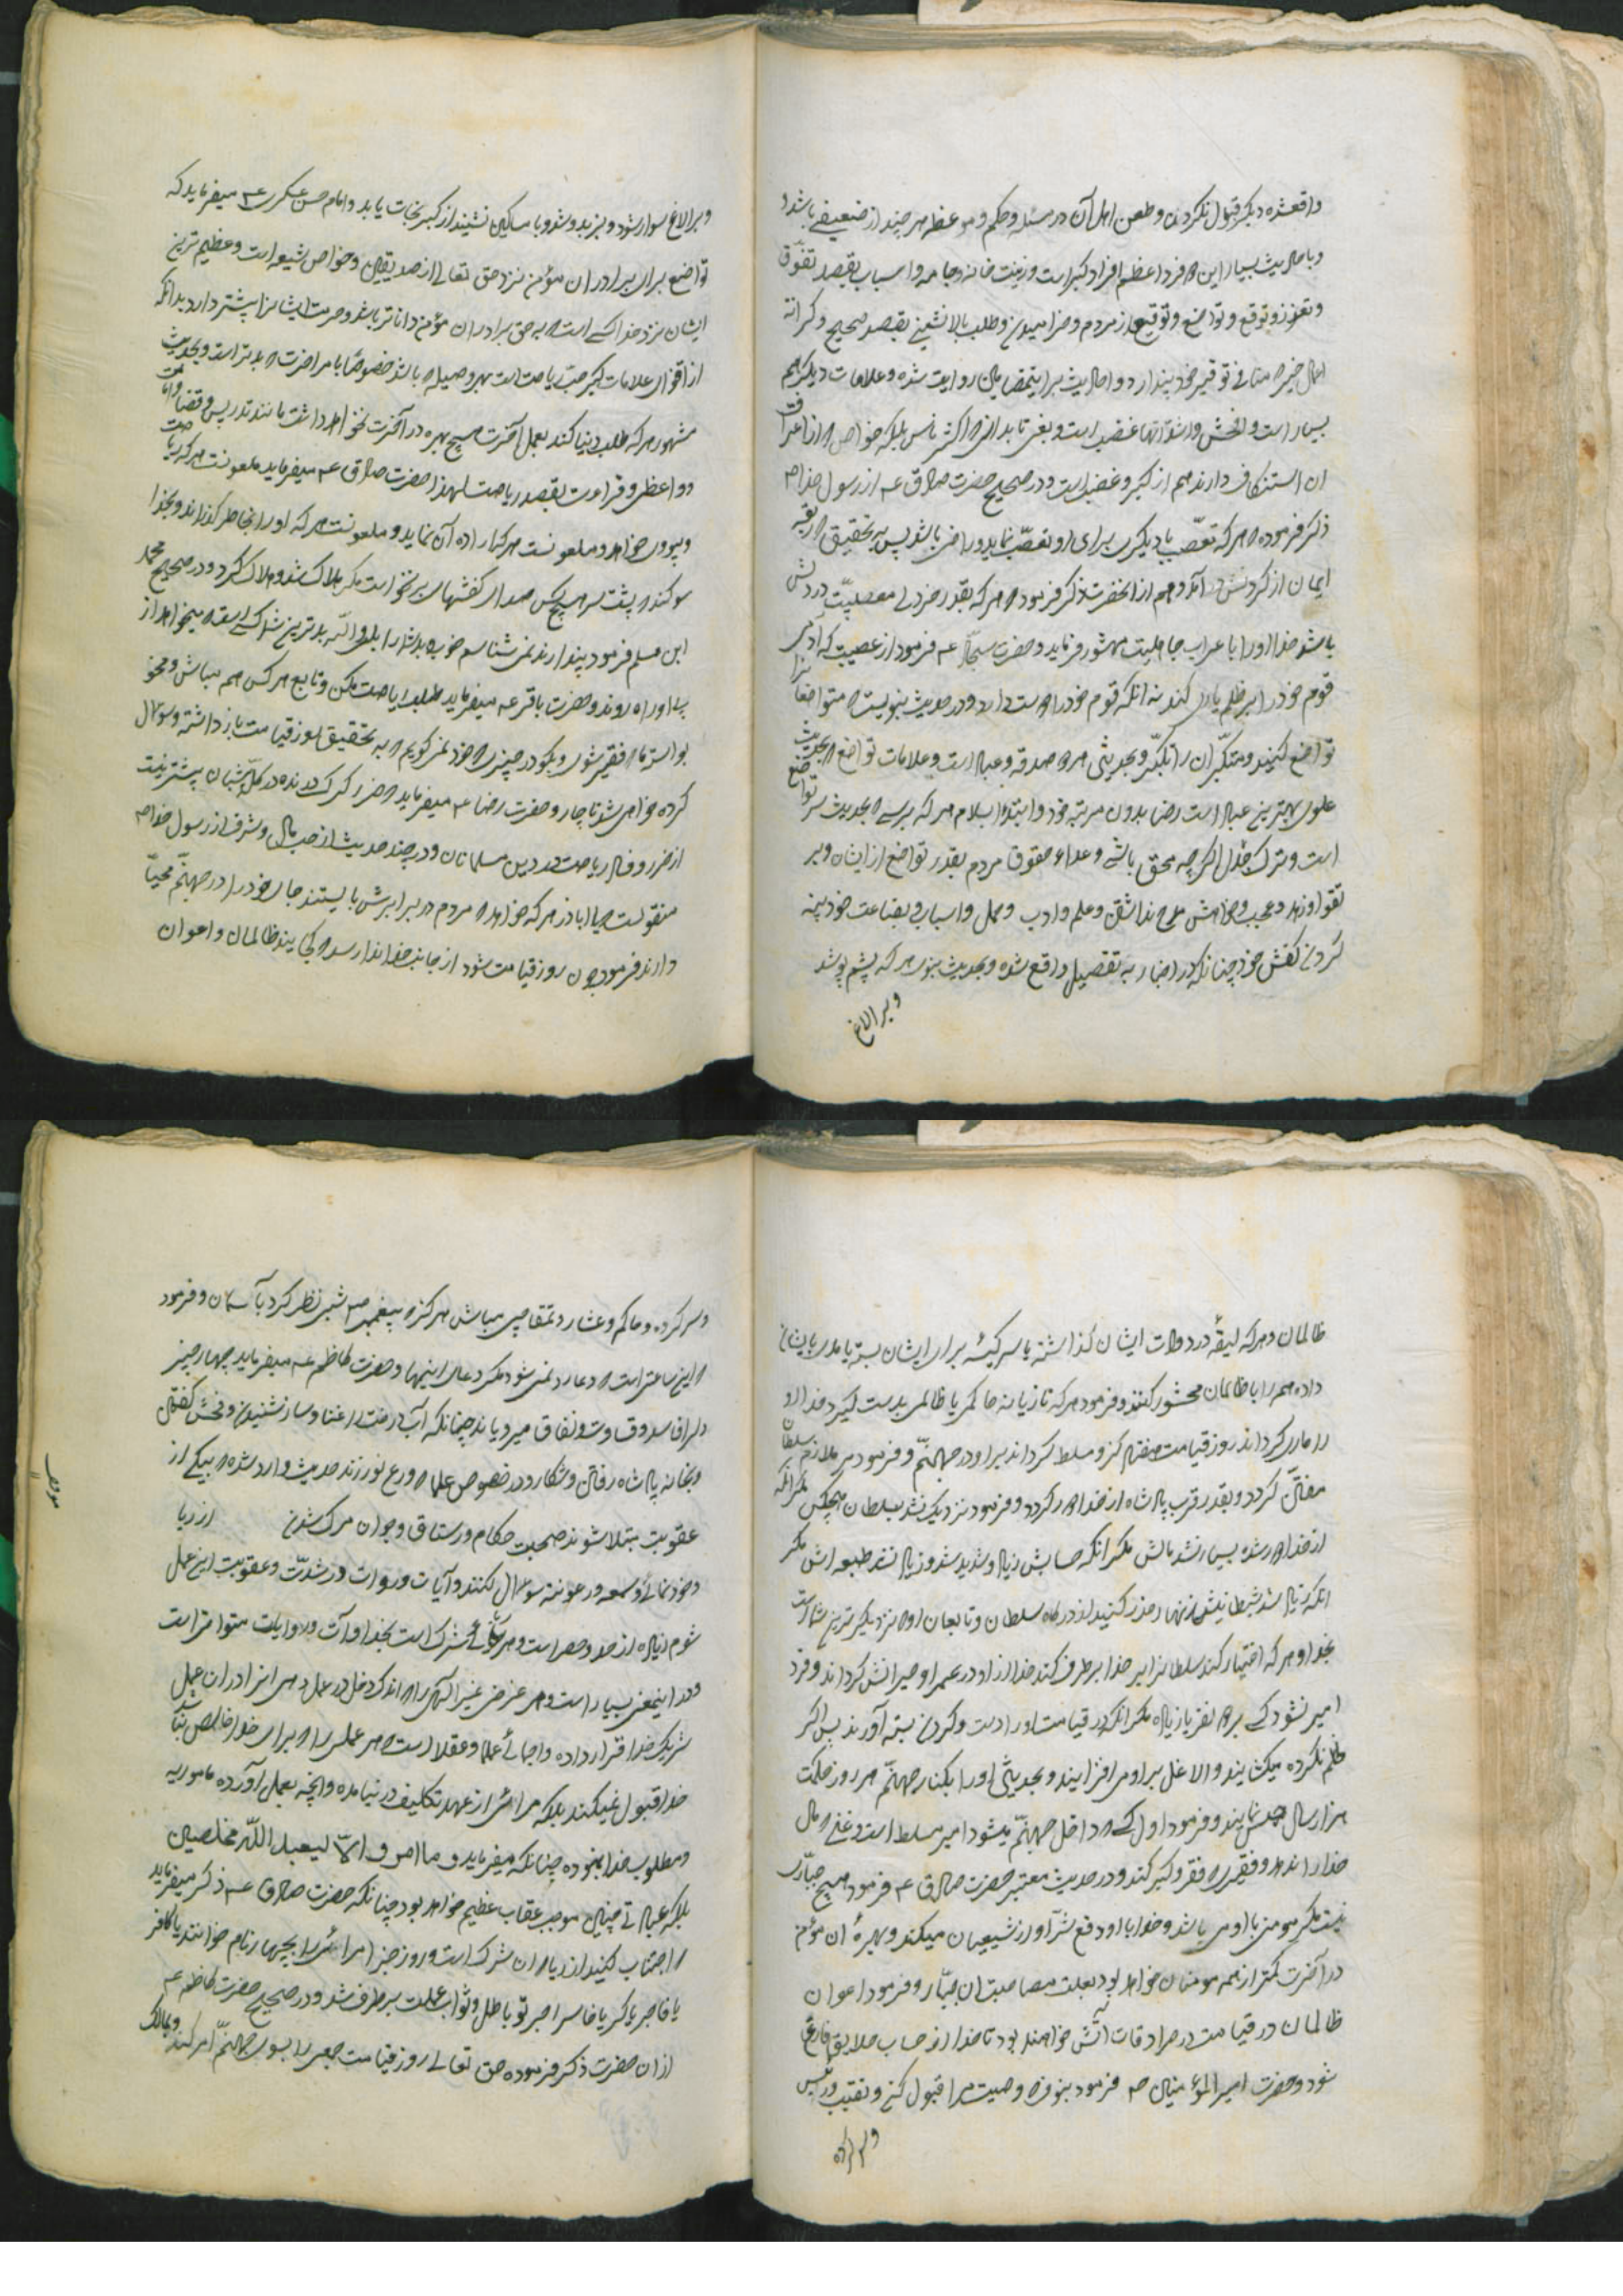 واقعشده دیگر قبول نکردن و طعن اهل آن در مسئله و حکم و موعظه هر چند از ضعیفی باشد و
و باحادیث بسیار این دو فرد اعظم افراد کبر است و زینت خانه و جامه و اسباب بقصد تفوق
و تعزز و توقع و تواضع و توقیع از مردم و بالانشینی بقصد صحیح و کرانه
اعمال خیر که منافی توقیر خود پندارد و احادیث برایتمضامین روایت شده و علامات دیگر هم
بسیار است و فحش و انها غضب است و بغی تا بدانی که اکثر ناس بلکه خواص که از
ان استنکاف دارند هم از کبر و غضب است و در صحیح حضرت صادق ع از رسول خدا ص
ذکر فرموده که هر که تعصب با دیگری برای او تعصب نماید و راضی باشد پس به تحقیق که ربقه
ایمان از گردنش در آمد و هم از آنحضرت ذکر فرموده که هر که بقدر خردلی عصبیت در دلش
باشد خدا او را با اعراب جاهلیت محشور فرماید و حضرت سجاد ع فرمود از عصبیت که آدمی
قوم خود را بر ظلم یاری کند نه انکه قوم خود را دوست دارد و در حدیث نبویست که متواضعانرا
تواضع کنید و متکبران را تکبر و بحدیثی هر دو صدقه و عبادت است و علامات تواضع که بحدیث
علوی بهترین عبادت است رضا بدون مرتبه خود و ابتدا بسلام هر که برسد که بحدیث سر تواضع
است و ترک جدال اگرچه محق باشی و اداء حقوق مردم بقدر تواضع از ایشان و بر
تقوا و زهد و عجب و خواهش مدح نداشتن و علم و ادب و عمل و اسباب و بضاعت خود پینه
کردن کفش خود چنانکه در اخبار به تفصیل واقع شده و بحدیث نبوی هر که پشم پوشد
و بر الاغ
و بر الاغ سوار شود و بز بدوشد و با مساکین نشیند از کبر نجات یابد و امام حسن عسکری ع میفرماید که
تواضع برای برادران مؤمن نزد حق تعالی از صدیقین و خواص شیعه است و عظیم ترین
ایشان نزد خدا کسی است که به حق برادران مؤمن داناتر باشد و حرمت ایشانرا بیشتر دارد بدانکه
از اقوای علامات کبر حب ریاست است بهر وسیله که باشد خصوصا بامر اخرت که بدتر است و بحدیث
مشهور هر که طلب دنیا کند بعمل آخرت هیچ بهره در آخرت نخواهد داشت مانند تدریس و قضا و امامت
و واعظی و قراءت بقصد ریاست لهذا حضرت صادق ع میفرماید ملعونست هر که ریاست
و پیروی خواهد و ملعونست هر که اراده آن نماید و ملعونست هر که او را بخاطر گذراند و بخدا
سوگند که پشت سر هیچ کس صدای کفشهای برنخواست مگر هلاک شد و هلاک کرد و در صحیح محمد
ابن مسلم فرمود پندارند نمی شناسم خوب و بد شما را بلی و الله بدترین شما کسی است که میخواهد از
پی او راه روند و حضرت باقر ع میفرماید طلب ریاست مکن و تابع هر کس هم مباش و مخور
بواسطه ما که فقیر شوی و مگو در چیزی که خود نمی گویم که به تحقیق روز قیامت باز داشته و سوال
کرده خواهی شد ناچار و حضرت رضا ع میفرماید که ضرر گرگ درنده در گله شبان بیشتر نیست
از ضرر و فساد ریاست در دین مسلمانان و در چند حدیث از حب مال و شرف از رسول خدا ص
منقولست که یا ابا ذر هر که خواهد که مردم در برابرش بایستند جای خود را در جهنم مهیا
دارند فرمود چون روز قیامت شود از جانب خدا ندا رسد که کجایند ظالمان و اعوان
ظالمان و هر که لیقه در دوات ایشان گذاشته یا سر کیسه برای ایشان بسته یا مدد بایشان
داده هم را با ظالمان محشور کنند و فرمود هر که تازیانه حاکمی یا ظالمی بدست گیرد خدا او
را ماری گرداند روز قیامت هفتاد گز و مسلط گرداند بر او در جهنم و فرمود هر ملازم سلطان
مفتتن گردد و بقدر قرب پادشاه از خدا دور گردد و فرمود نزدیک نشد بسلطان هیچکس مگر انکه
از خدا دور شده بسیار نشد مالش مگر انکه حسابش زیاد و شدید شد و زیاد نشد طبعه اش مگر
انکه زیاد شد شیطانینش زنهار حذر کنید از درگاه سلطان و تابعان او که نزدیکترین شما است
بخدا و هر که اختیار کند سلطانرا بر خدا برطرف کند خدا از او در عمر او حیرانش گرداند و فرمود
امیر نشود کسی بر ده نفر یا زیاده مگر انکه در قیامت او را دست و گردن بسته آورند پس اگر
ظلم نکرده میگشایند و الا غل بر او می افزایند و بحدیثی او را بکنار جهنم هر روز حکومت
هزار سال حبس نمایند و فرمود اول کسی که داخل جهنم میشود امیر مسلط است و غنی که مال
خدا را ندهد و فقیری که فقر و کبر کند و در حدیث معتبر حضرت صادق ع فرمود هیچ جباری
نیست مگر مومنی با او می باشد و خدا با او دفع شر او از شیعیان میکند و بهره ان مؤمن
در آخرت کمتر از همه مومنان خواهد بود بعلت مصاحبت ان جبار و فرمود اعوان
ظالمان در قیامت در سرادقات آتش خواهند بود تا خدا از حساب خلایق فارغ
شود و حضرت امیر المؤمنین ص فرمود بنوف که وصیت مرا قبول کن و نقیب و رئیس
و سر کرده
و سر کرده و حاکم و عشار و تمقاچی مباش هرگز که پیغمبر ص شبی نظر کرد بآسمان و فرمود
که این ساعتی است که دعا رد نمی شود مگر دعای اینها و حضرت کاظم ع میفرماید چهار چیز
دلرا فاسد و قساوت و نفاق میرویاند چنانکه آب درخت را غنا و ساز شنیدن و فحش گفتن
و بخانه پادشاه رفتن و شکار و در خصوص علما که ورع نورزند حدیث وارد شده که بیکی از
عقوبت مبتلا شوند صحبت حکام و رستاق و جوان مرگ شدن از ریا
و خود نمائی و سمعه و رعونت سوال نکنند و آیات و روایات در شدت و عقوبت این عمل
شوم زیاده از حد و حصر است و هر ریائی شرک است بخدا و آیات و روایات متواتر است
و در اینمعنی بسیار است و هر غرض غیر الهی را که اندک دخل در عمل دهی انرا در ان عمل
شریک خدا قرار داده و اجماع علما و عقلا است که هر عملی را که برای خدا خالص نباشد
خدا قبول نمیکند بلکه مرائی از عهده تکلیف در نیامده و انچه بعمل آورده مامور به
و مطلوب خدا نبوده چنانکه میفرماید و ما امروا الا لیعبدوا الله مخلصین
بلکه عبادتی چنین موجب عقاب عظیم خواهد بود چنانکه حضرت صادق ع ذکر میفرماید
که اجتناب کنید از ریا که ان شرک است و روز جزا مرائی را بچهار نام خوانند یا کافر
یا فاجر یا مکر یا خاسر اجر تو باطل و ثواب عملت برطرف شد و در صحیح حضرت کاظم ع
از ان حضرت ذکر فرموده حق تعالی روز قیامت جمعی را بسوی جهنم امر کند و بمالک